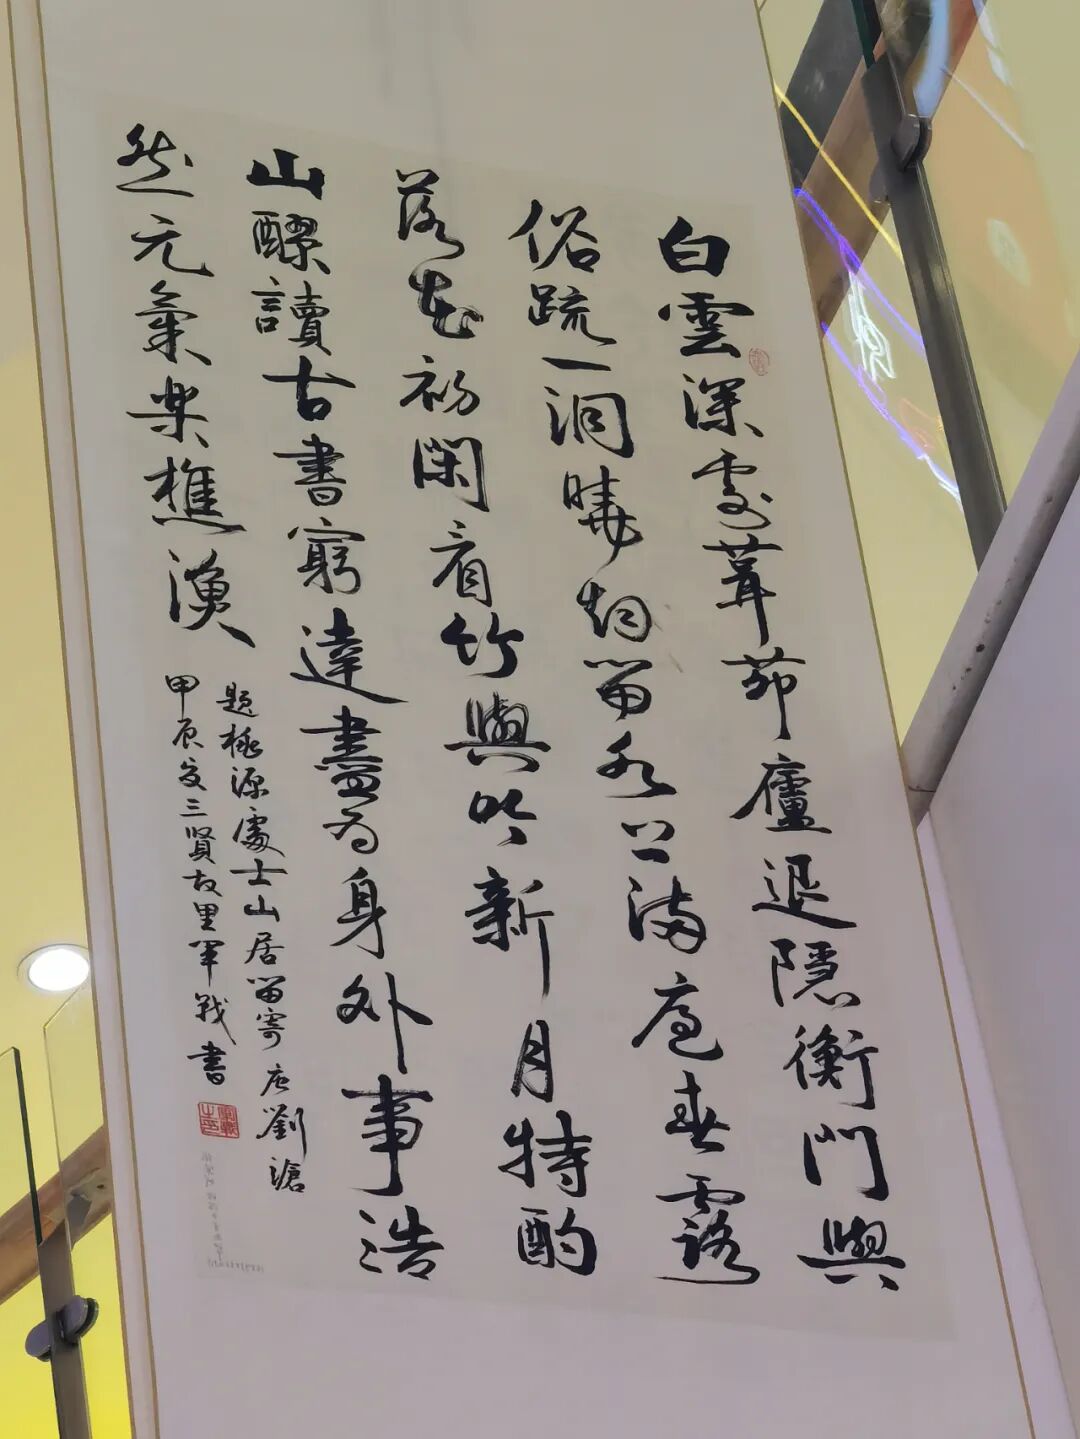 白雲深處葺茆廬退隱衡門與
俗疏一洞曉烟留水上滿庭春露
落花初閑看竹與吟新月特酌
山醪讀古書窮達盡为身外事浩
然元氣楽樵漁
題桃源處士山居留寄唐劉滄
甲辰夏三賢故里軍戰書